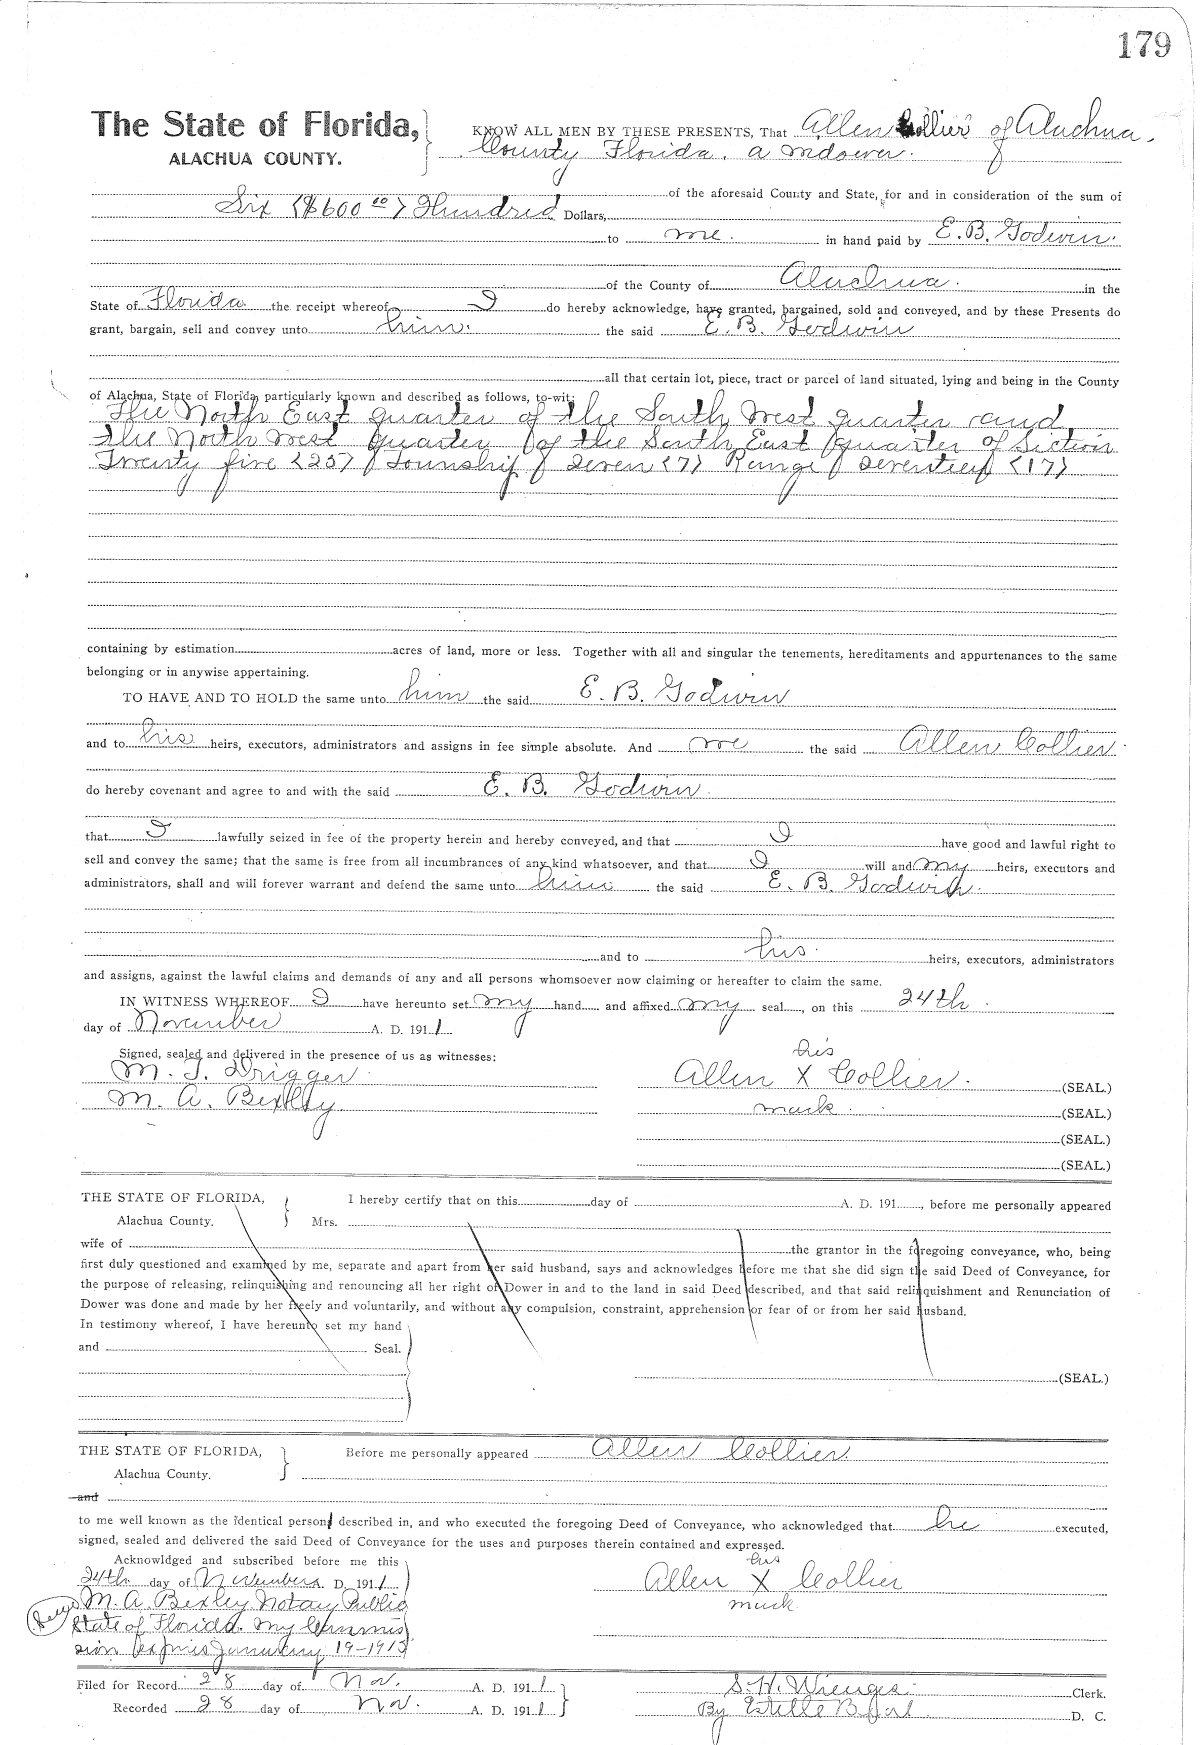 179
The State of Florida,
ALACHUA COUNTY.
KNOW ALL MEN BY THESE PRESENTS, That Allen Collier of Alachua
County Florida. a widower.
of the aforesaid County and State, for and in consideration of the sum of
Six ($600 00) Hundred Dollars,
to me. in hand paid by E. B. Godwin.
of the County of Alachua. in the
State of Florida the receipt whereof I do hereby acknowledge, have granted, bargained, sold and conveyed, and by these Presents do
grant, bargain, sell and convey unto him. the said E. B. Godwin
all that certain lot, piece, tract or parcel of land situated, lying and being in the County
of Alachua, State of Florida particularly known and described as follows, to-wit:
The North East quarter of the South West quarter and
the North West quarter of the South East quarter of Section
Twenty five (25) Township Seven (7) Range Seventeen (17)
containing by estimation acres of land, more or less. Together with all and singular the tenements, hereditaments and appurtenances to the same
belonging or in anywise appertaining.
TO HAVE AND TO HOLD the same unto him the said E. B. Godwin
and to his heirs, executors, administrators and assigns in fee simple absolute. And me the said Allen Collier
do hereby covenant and agree to and with the said E. B. Godwin
that I lawfully seized in fee of the property herein and hereby conveyed, and that I have good and lawful right to
sell and convey the same; that the same is free from all incumbrances of any kind whatsoever, and that I will and my heirs, executors and
administrators, shall and will forever warrant and defend the same unto him the said E. B. Godwin.
and to his. heirs, executors, administrators
and assigns, against the lawful claims and demands of any and all persons whomsoever now claiming or hereafter to claim the same.
IN WITNESS WHEREOF I have hereunto set my hand and affixed my seal, on this 24th.
day of November A. D. 1911
Signed, sealed and delivered in the presence of us as witnesses:
his
M. J. Drigger
Allen X Collier. (SEAL.)
M. A. Bexley
mark. (SEAL.)
(SEAL.)
(SEAL.)
THE STATE OF FLORIDA,
Alachua County.
I hereby certify that on this day of A. D. 191 , before me personally appeared
Mrs.
wife of the grantor in the foregoing conveyance, who, being
first duly questioned and examined by me, separate and apart from her said husband, says and acknowledges before me that she did sign the said Deed of Conveyance, for
the purpose of releasing, relinquishing and renouncing all her right of Dower in and to the land in said Deed described, and that said relinquishment and Renunciation of
Dower was done and made by her freely and voluntarily, and without any compulsion, constraint, apprehension or fear of or from her said husband.
In testimony whereof, I have hereunto set my hand
and Seal.
(SEAL.)
THE STATE OF FLORIDA,
Alachua County.
Before me personally appeared Allen Collier.
and
to me well known as the identical person described in, and who executed the foregoing Deed of Conveyance, who acknowledged that he executed,
signed, sealed and delivered the said Deed of Conveyance for the uses and purposes therein contained and expressed.
Acknowldged and subscribed before me this
his
24th day of November A. D. 1911
Allen X Collier
mark
M. A. Bexley Notary Public
State of Florida. My Commis
sion Expires January 19-1915
Filed for Record 28 day of Nov. A. D. 1911
S. H. Wienges. Clerk.
Recorded 28 day of Nov. A. D. 1911
By Estelle D. C.